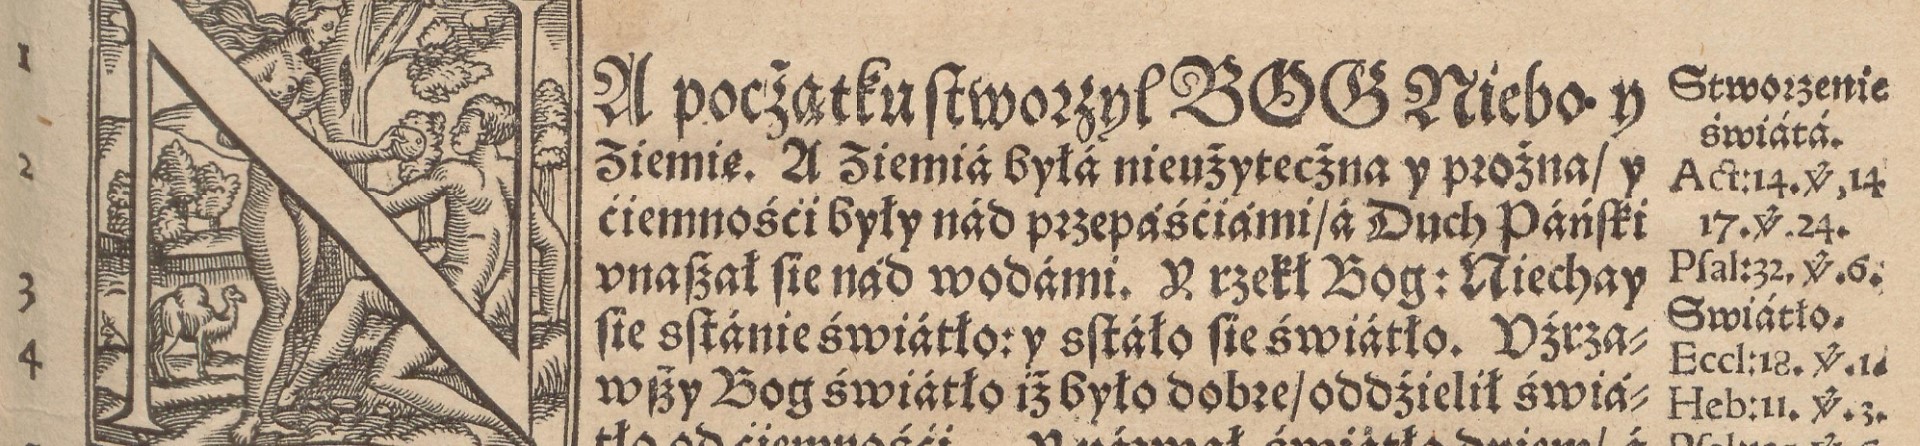 1
2
3
4
NA początku stworzył BOG Niebo y
Ziemię. A Ziemiá byłá nieużyteczna y prożna/ y
ciemnośći były nád przepáśćiámi/á Duch Páńſki
vnaszał ſie nád wodámi. Y rzekł Bog: Niechay
ſie sſtánie świátło: y sſtáło ſie świátło. Vźrza⸗
wszy Bog świátło iż było dobre/oddźielił świá⸗
tło od ciemnośći. Y názwał świátło dniem/ á
Stworzenie
świátá.
Act:14. ℣, 14
17. ℣. 24.
Pſal:32. ℣. 6.
Swiátło.
Eccl:18. ℣. 1.
Heb:11. ℣. 3.